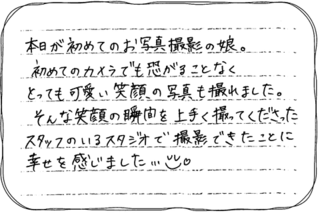 本日が初めてのお写真撮影の娘。
初めてのカメラでも恐がることなく
とっても可愛い笑顔の写真も撮れました。
そんな笑顔の瞬間を上手く撮ってくださった
スタッフのいるスタジオで撮影できたことに
幸せを感じました…